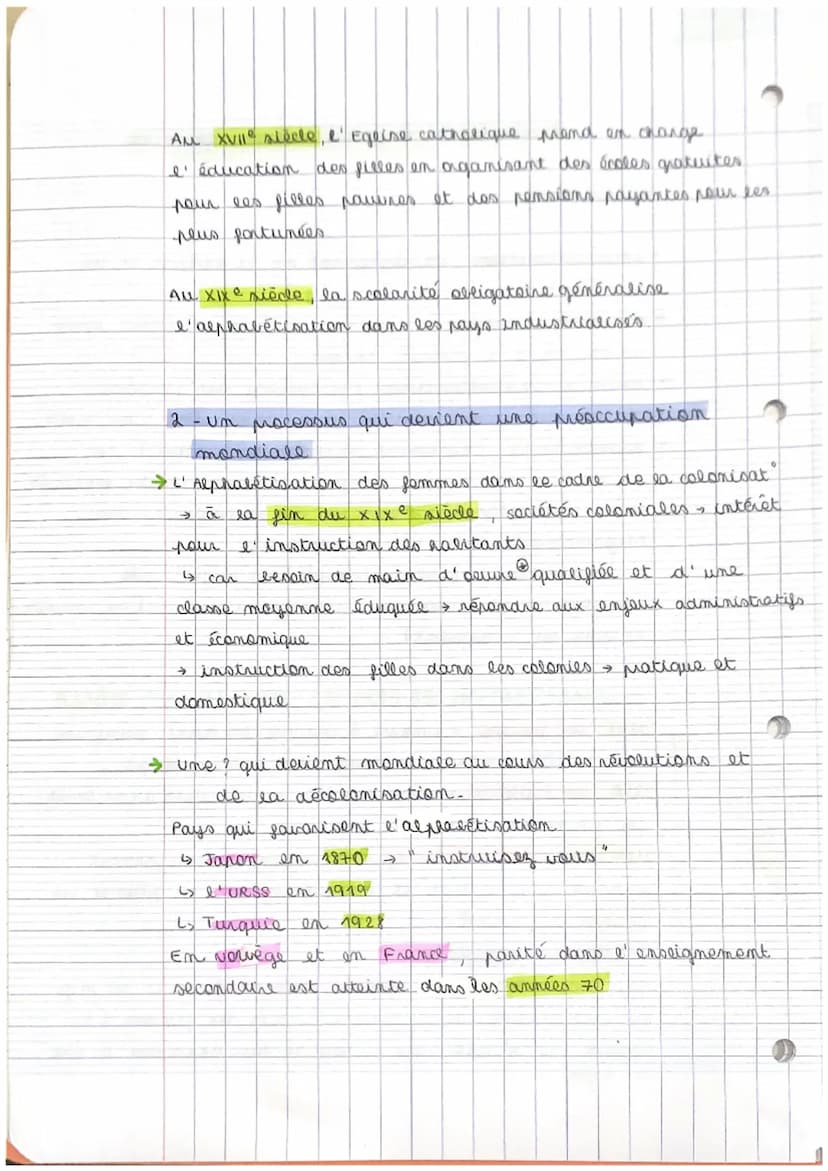 Au XVIIe siècle, l'Eglise catholique prend en charge
l'éducation des filles en organisant des écoles gratuites
pour les filles pauvres et des pensions payantes pour les
plus fortunées
Au XIXe siècle, la scolarité obligatoire généralise
l'alphabétisation dans les pays industrialisés.
2 - Un processus qui devient une préoccupation
mondiale
→ L'Alphabétisation des femmes dans le cadre de la colonisat°
→ à la fin du XIXe siècle, sociétés coloniales → intérêt
pour l'instruction des habitants
↳ car besoin de main d'oeuvre ⊕ qualifiée et d'une
classe moyenne éduquée → répondre aux enjeux administratifs
et économique
→ instruction des filles dans les colonies → pratique et
domestique
→ une ? qui devient mondiale au cours des révolutions et
de la décolonisation.
Pays qui favorisent l'alphabétisation
↳ Japon en 1870 → "instruisez vous"
↳ l'URSS en 1919
↳ Turquie en 1928
En Norvège et en France, parité dans l'enseignement
secondaire est atteinte dans les années 70